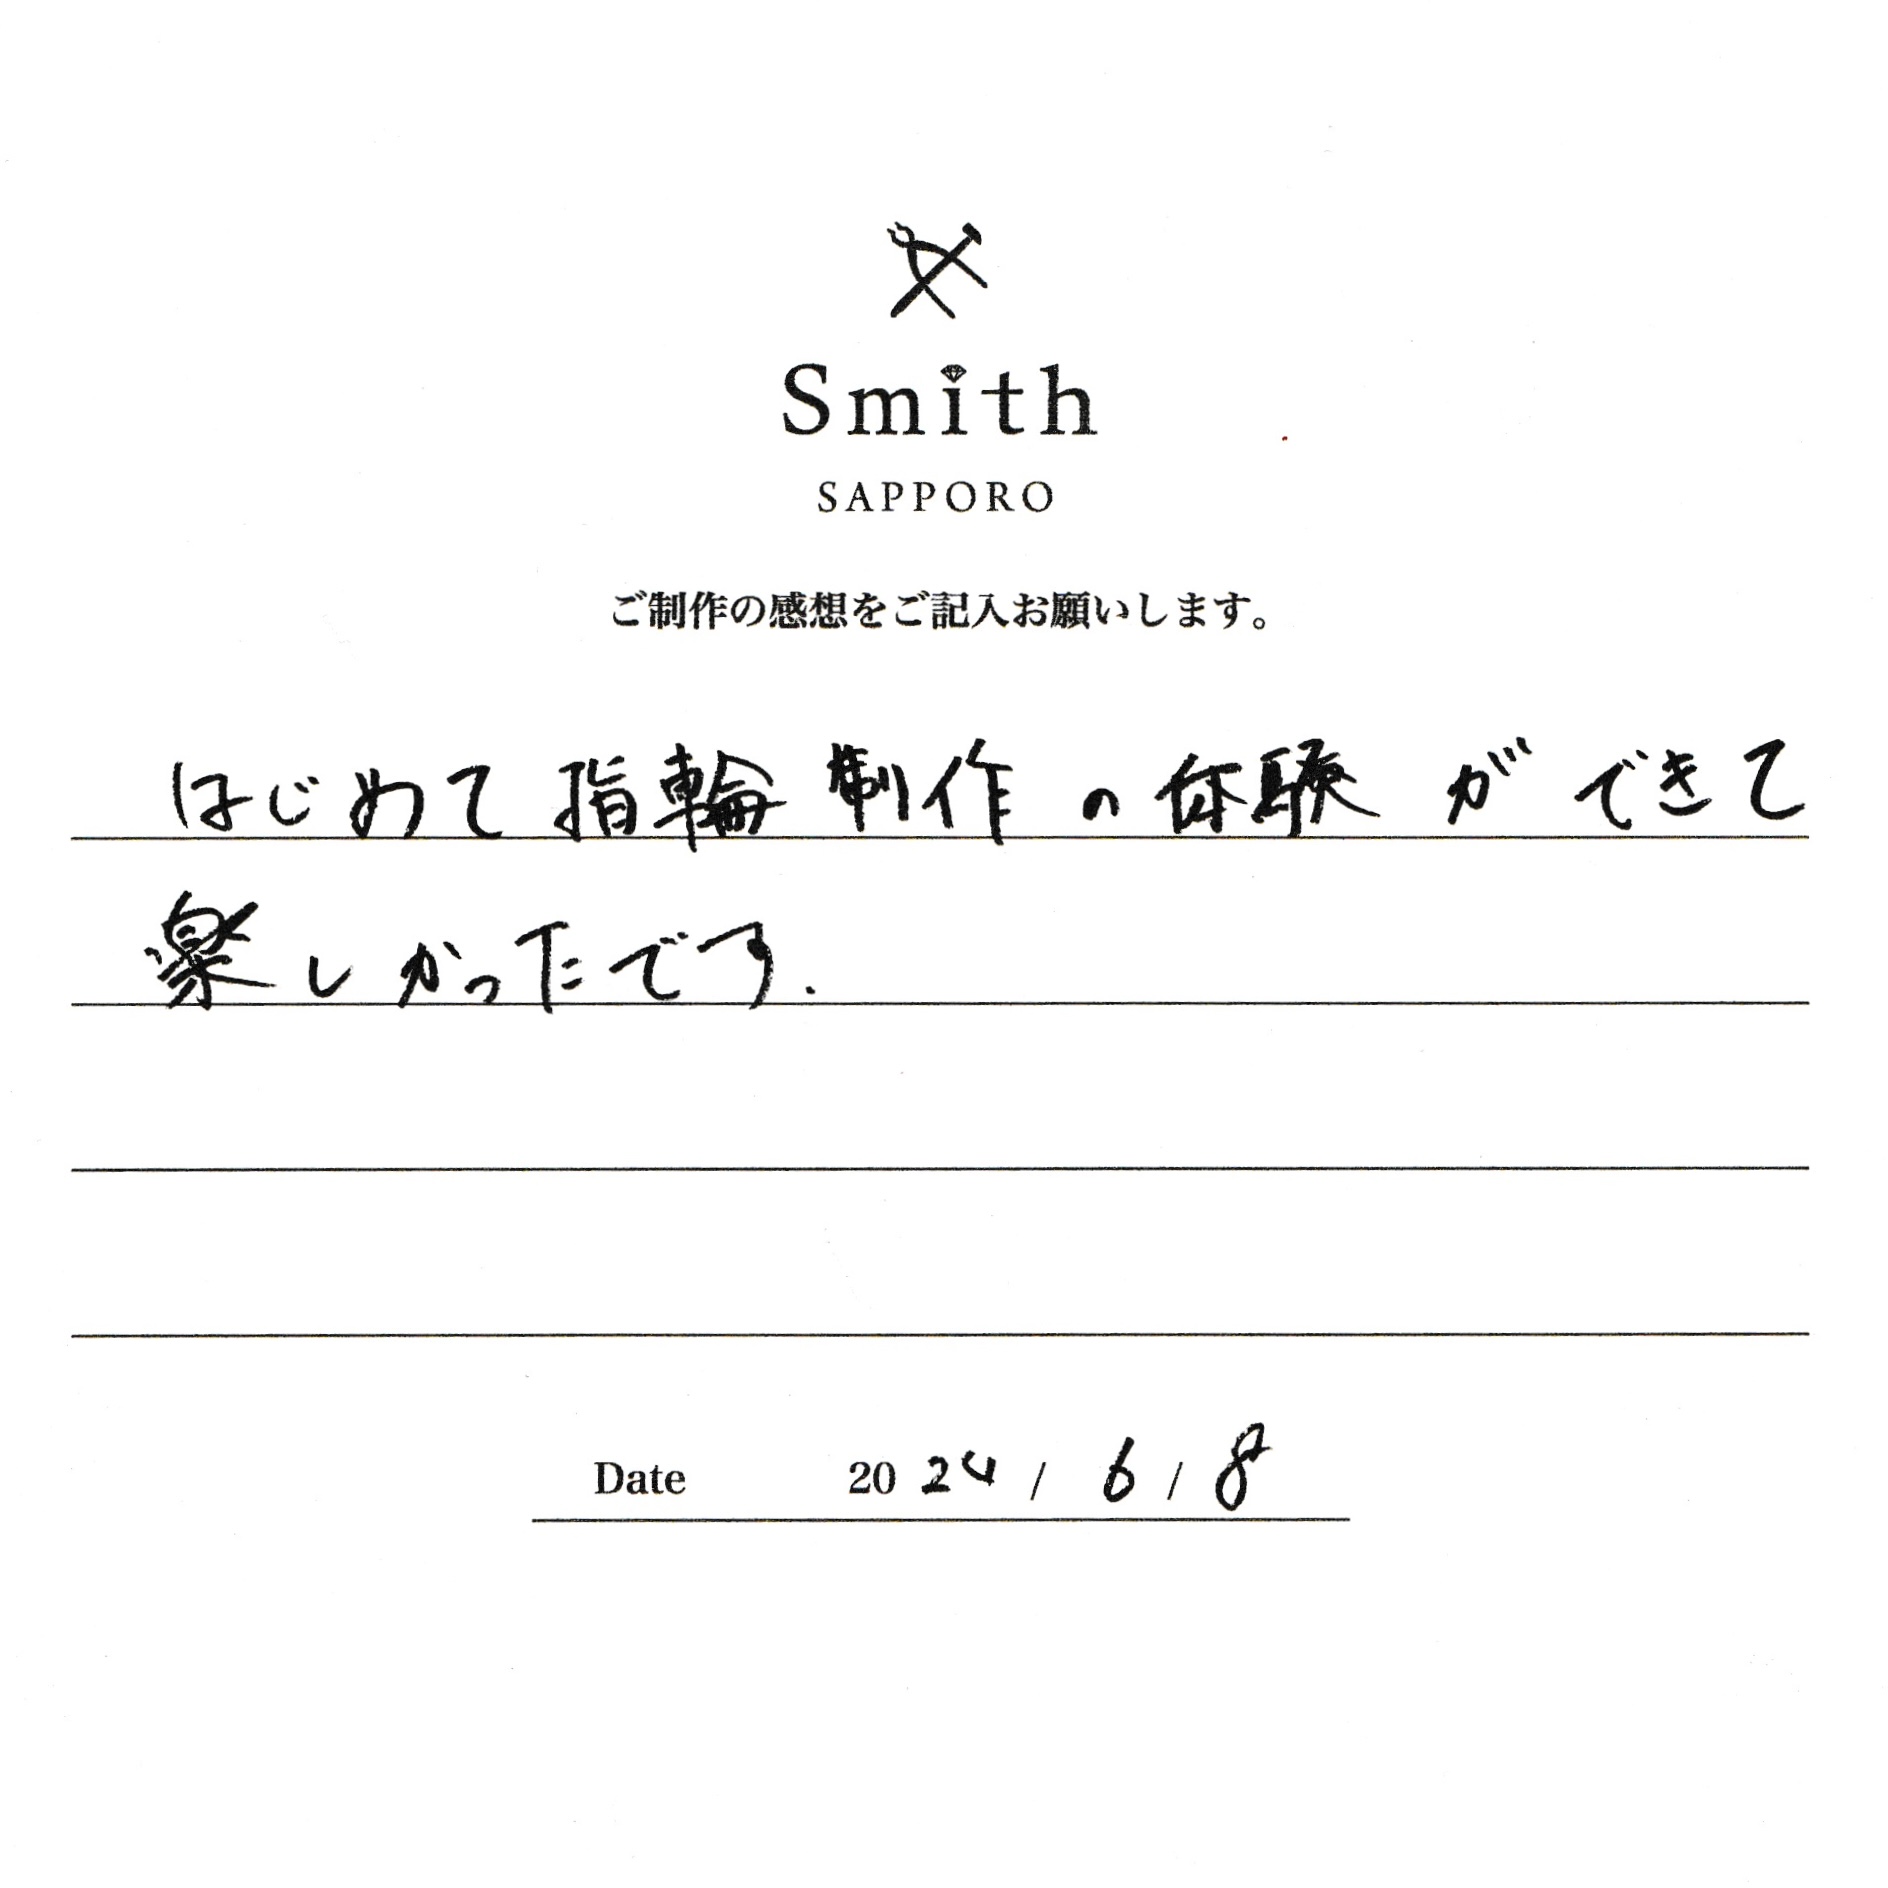 Smith
SAPPORO
ご制作の感想をご記入お願いします。
はじめて指輪制作の体験ができて
楽しかったです.
Date 2024 / 6 / 8